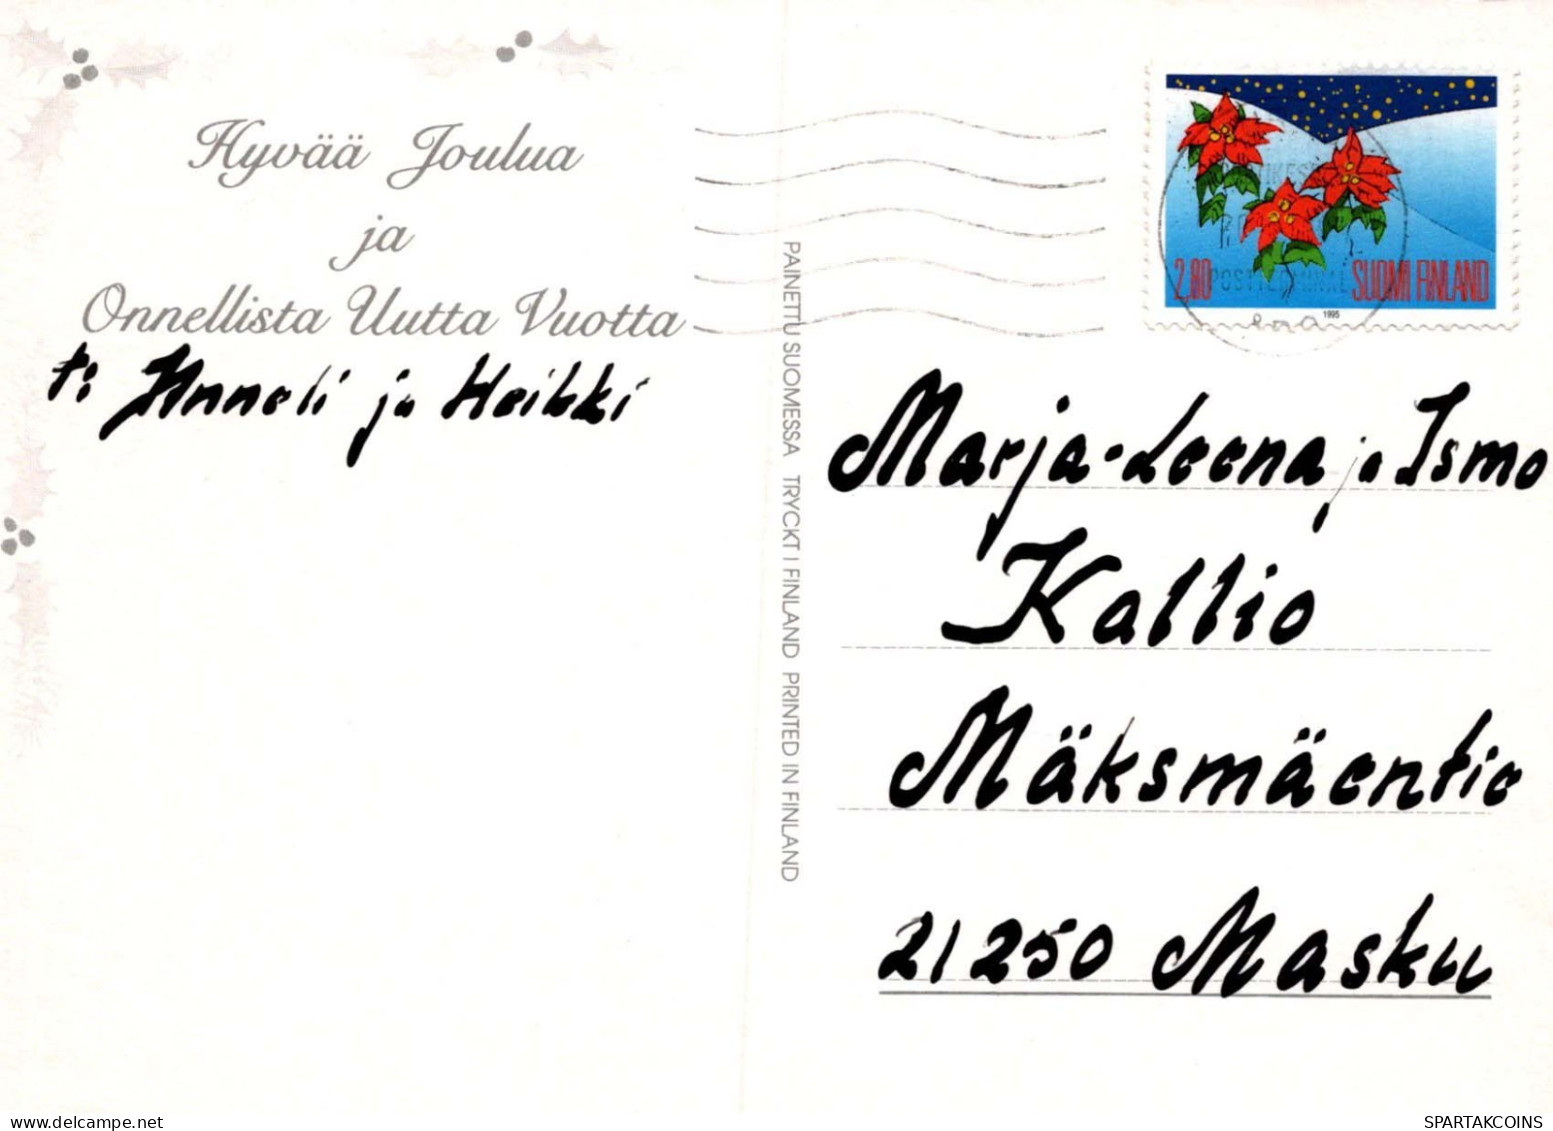 Hyvää Joulua
ja
Onnellista Uutta Vuotta
t: Anneli ja Heikki
PAINETTU SUOMESSA TRYCKT I FINLAND PRINTED IN FINLAND
2,80 SUOMI FINLAND
1995
Marja-Leena ja Ismo
Kallio
Mäksmäentie
21250 Masku
delcampe.net
SPARTAKCOINS